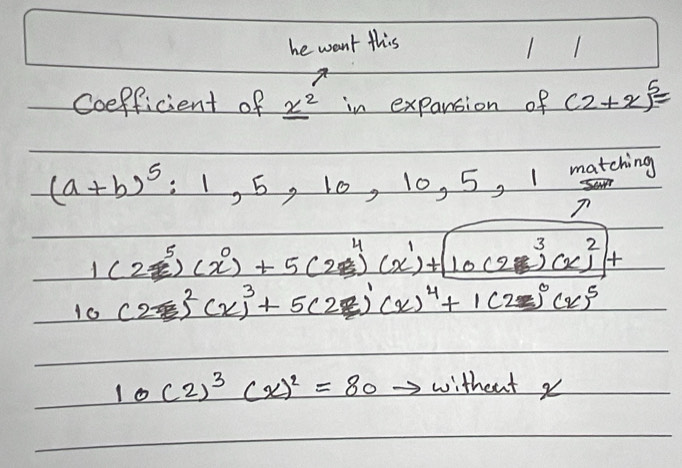 he want this / /
Coefficient of x² in expansion of (2+x)⁵=
(a+b)⁵: 1, 5, 10, 10, 5, 1 matching
1(2)⁵(x)⁰ + 5(2)⁴(x)¹ + 10(2)³(x)² +
10(2)²(x)³ + 5(2)¹(x)⁴ + 1(2)⁰(x)⁵
10(2)³(x)² = 80 → without x